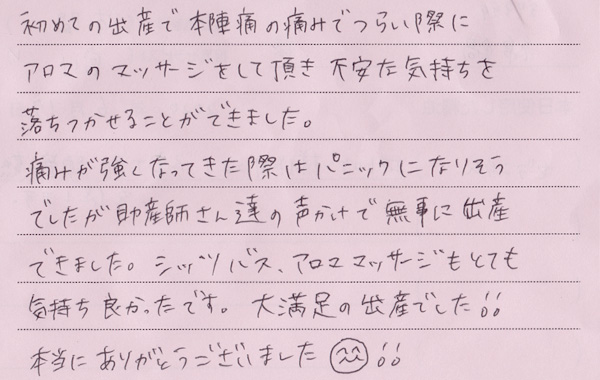 初めての出産で本陣痛の痛みでつらい際に
アロマのマッサージをして頂き不安な気持ちを
落ちつかせることができました。
痛みが強くなってきた際はパニックになりそう
でしたが助産師さん達の声かけで無事に出産
できました。シッツバス、アロママッサージもとても
気持ち良かったです。大満足の出産でした!!
本当にありがとうございました ^^ !!